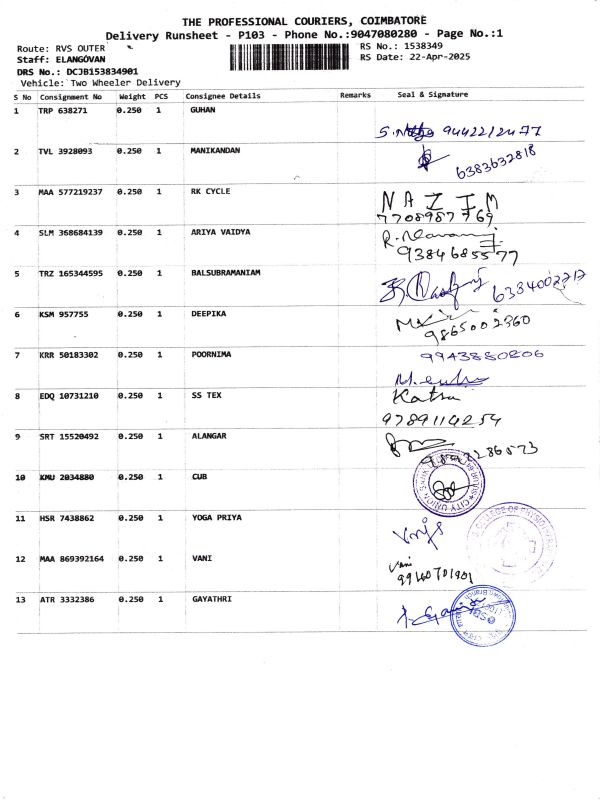 THE PROFESSIONAL COURIERS, COIMBATORE
Delivery Runsheet - P103 - Phone No.:9047080280 - Page No.:1
Route: RVS OUTER
RS No.: 1538349
Staff: ELANGOVAN
RS Date: 22-Apr-2025
DRS No.: DCJB153834901
Vehicle: Two Wheeler Delivery
S No Consignment No Weight PCS Consignee Details Remarks Seal & Signature
1 TRP 638271 0.250 1 GUHAN
9442212477
2 TVL 3928093 0.250 1 MANIKANDAN
6383632818
3 MAA 577219237 0.250 1 RK CYCLE
NAZIM
7708987769
4 SLM 368684139 0.250 1 ARIYA VAIDYA
9384685577
5 TRZ 165344595 0.250 1 BALSUBRAMANIAM
6384002717
6 KSM 957755 0.250 1 DEEPIKA
9865002360
7 KRR 50183302 0.250 1 POORNIMA
9943880206
8 EDQ 10731210 0.250 1 SS TEX
9789114254
9 SRT 15520492 0.250 1 ALANGAR
10 KMU 2034880 0.250 1 CUB
CITY UNION
11 HSR 7438862 0.250 1 YOGA PRIYA
COLLEGE OF PHYSIOTHERAPY
12 MAA 869392164 0.250 1 VANI
Vani
13 ATR 3332386 0.250 1 GAYATHRI